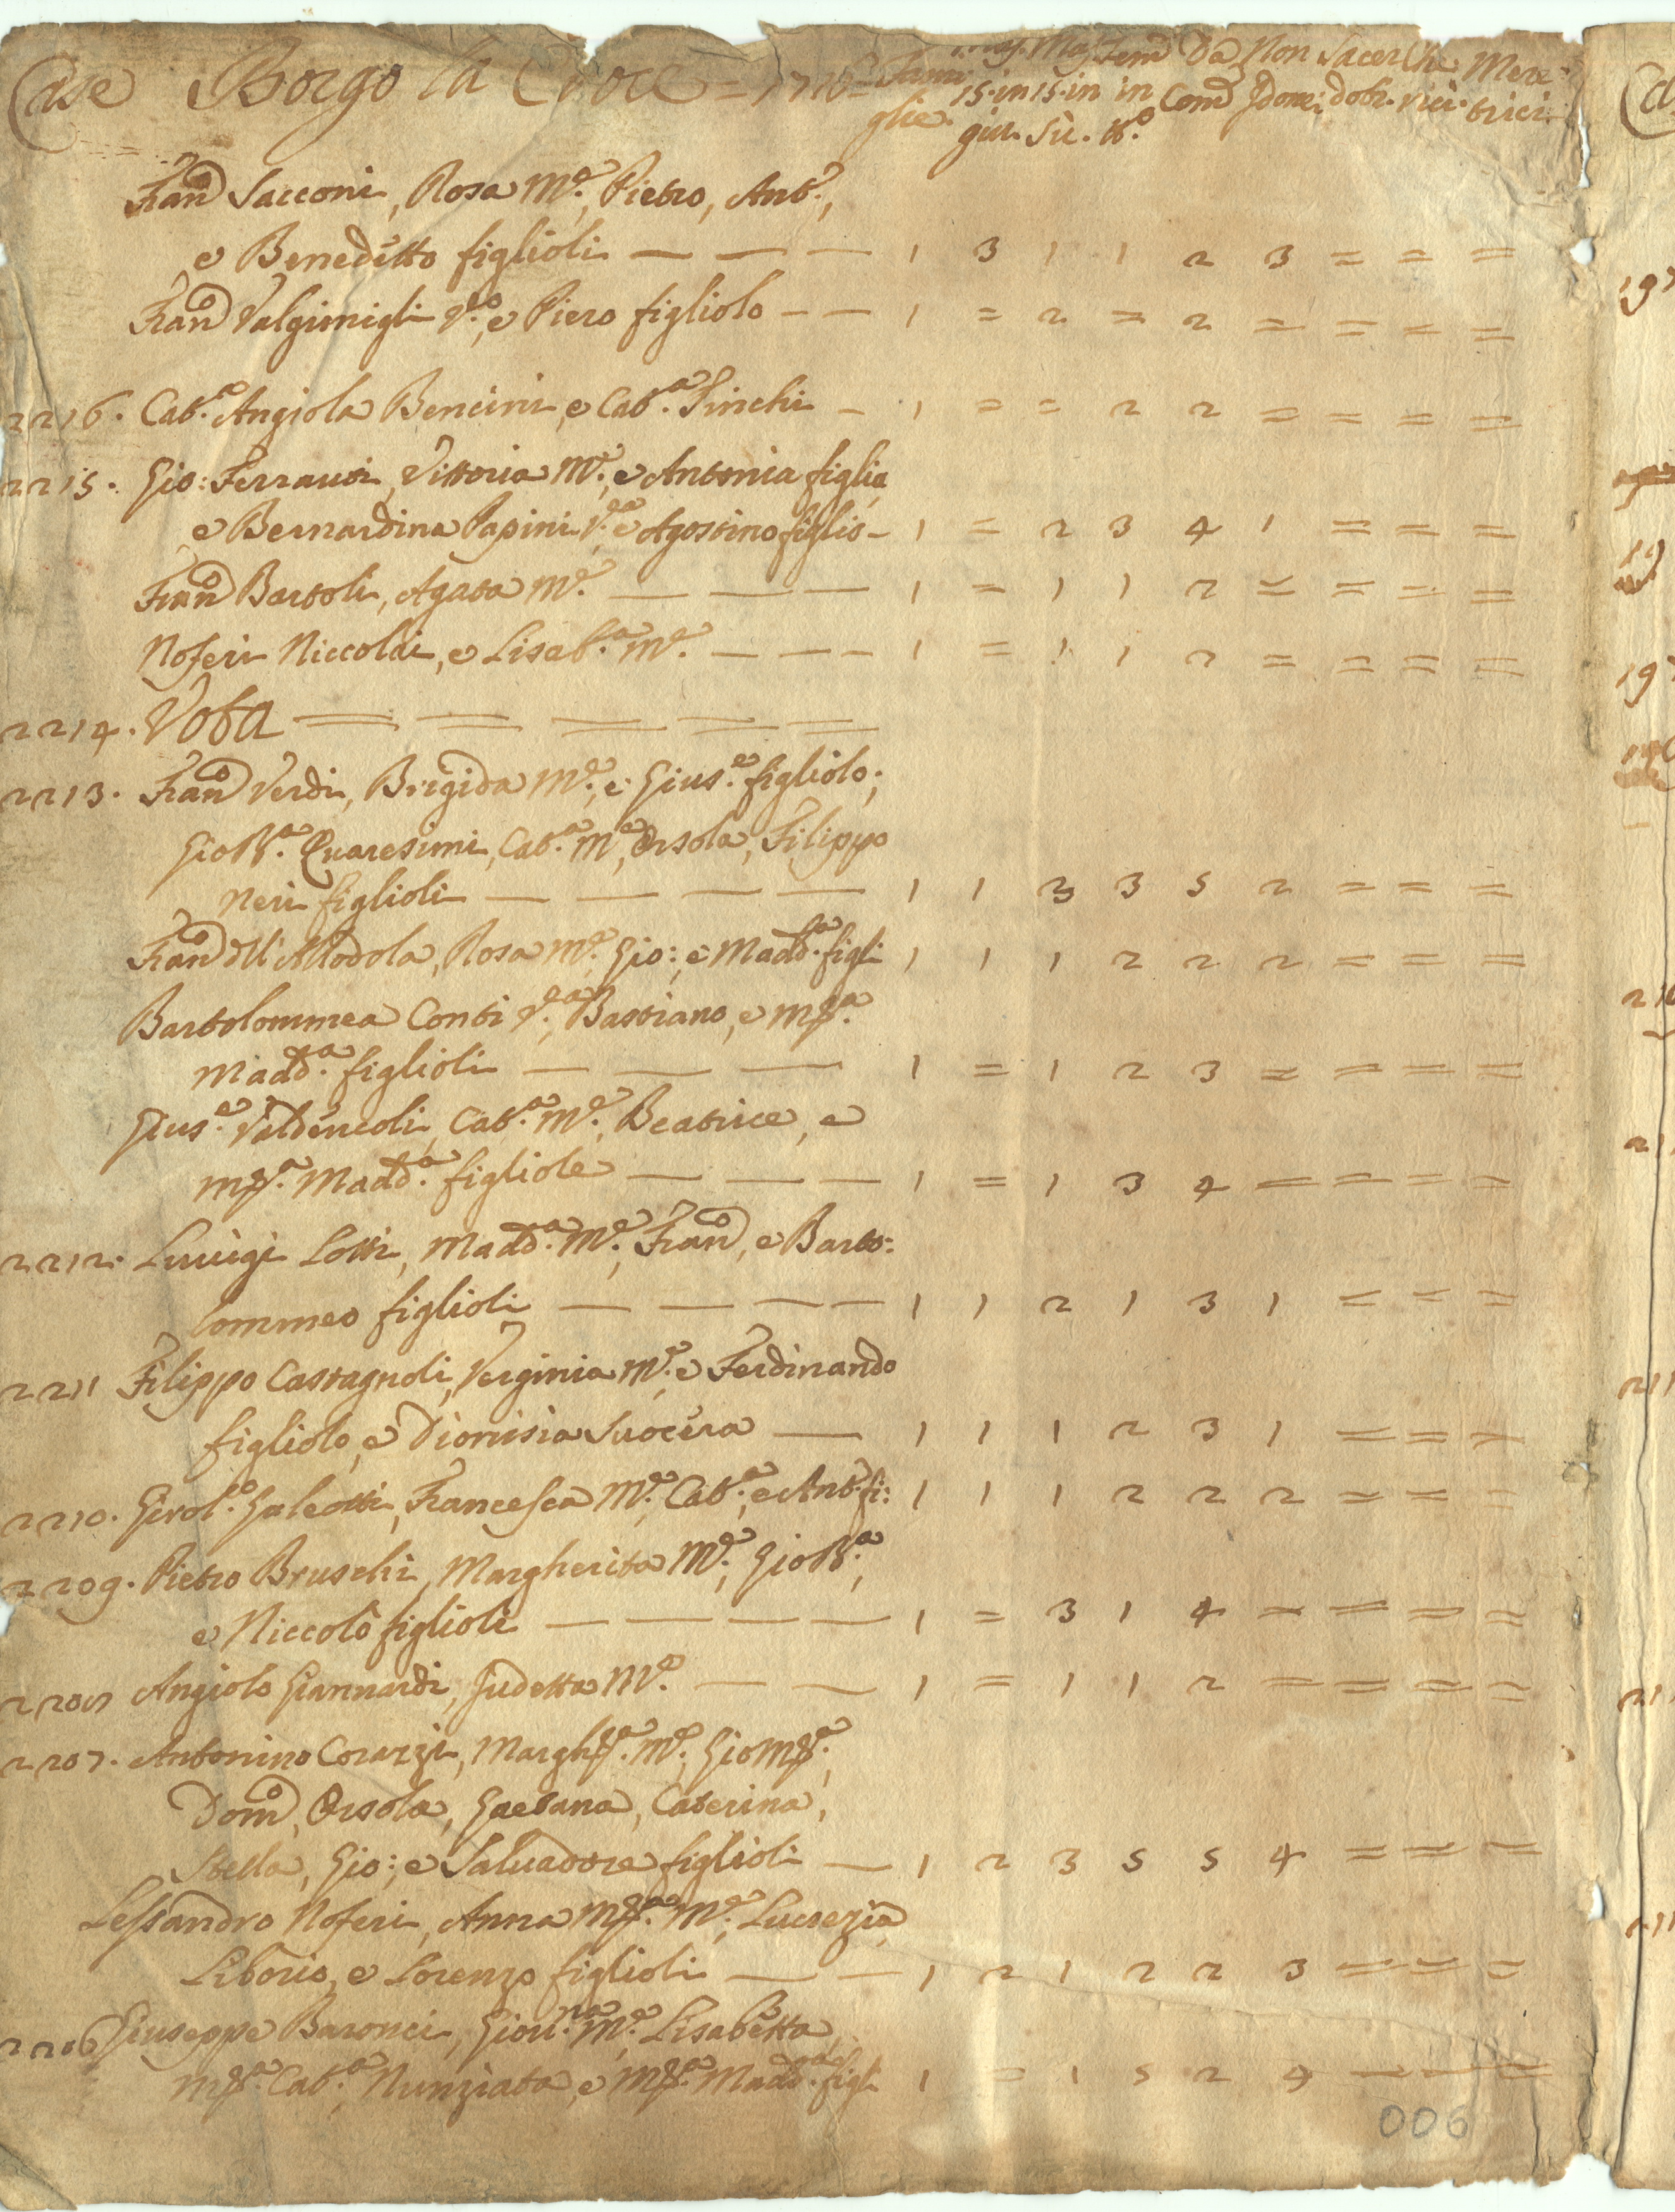 Case Borgo la Croce = 1716 = Fami Mas. Mas. Fem Da Non Sacer Che Mere=
glie. 15. in 15. in in Com Com dot. rici. trici
giu. Sù. tt.o
Fran.o Sacconi, Rosa M.e, Pietro, Ant.o,
e Benedetto figlioli — — — 1 3 1 1 2 3 = = =
Fran.o Valgimigli V.o, e Piero figliolo — — 1 = 2 = 2 = = = =
2216. Cat.a Angiola Bencini, e Cat.a Finchi — 1 = = 2 2 = = = =
2215. Gio: Ferrausi, Vittoria M.e, e Antonia figlia
e Bernardina Papini V.a e Agostino figlio — 1 = 2 3 4 1 = = =
Fran.o Bartoli, Agata M.e — — — 1 = 1 1 2 = = = =
Noferi Niccolai, e Lisab.a M.e — — — 1 = 1 1 2 = = = =
2214. Vota = = = = =
2213. Fran.o Verdi, Brigida M.e, e Gius.e figliolo;
Gio B.a Quaresimi, Cat.a M.e, Orsola, Filippo
Neri figlioli — — — — 1 1 3 3 5 2 = = =
Fran.o dll'Allodola, Rosa M.e, Gio:, e Madd.a figli 1 1 1 2 2 2 = = =
Bartolommea Conti V.a, Bastiano, e Mª.
Madd.a figlioli — — — 1 = 1 2 3 = = = =
Gius.e Valdencoli, Cat.a M.e, Beatrice, e
Mª. Madd.a figliole — — — 1 = 1 3 4 = = = =
2212. Luuigi Lotti, Madd.a M.e, Fran.o, e Barto:
lommeo figlioli — — — — 1 1 2 1 3 1 = = =
2211 Filippo Castagnoli, Verginia M.e, e Ferdinando
figliolo, e Dionisia Suocera — 1 1 1 2 3 1 = = =
2210. Girol.o Galeotti, Francesca M.e, Cat.a, e Ant.o fi: 1 1 1 2 2 2 = = =
2209. Pietro Bruschi, Margherita M.e, Gio B.a,
e Niccolò figlioli — — — — 1 = 3 1 4 = = = =
2208 Angiolo Giannardi, Judetta M.e — — 1 = 1 1 2 = = = =
2207. Antonino Corazzi, Margh.a M.e, Gio Mª.,
Dom.o, Orsola, Gaetana, Caterina,
Stella, Gio:, e Saluadore figlioli — 1 2 3 5 5 4 = = =
Lessandro Noferi, Anna Mª. M.e, Lucrezia
Liborio, e Lorenzo figlioli — — 1 2 1 2 2 3 = = =
2206 Giuseppe Baronci, Giou.na M.e, Lisabetta,
Mª. Cat.a, Nunziata, e Mª. Madd.a figli 1 = 1 5 2 4 = = =
006